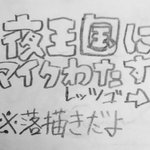 夜王国に
マイクわたす
レッツゴー→
※落描きだよ